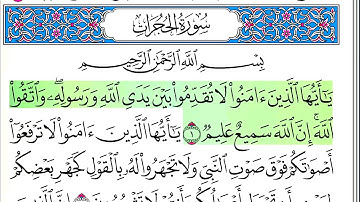 سُورَةُ الحُجُرَاتِ
بِسْمِ اللَّهِ الرَّحْمَٰنِ الرَّحِيمِ
يَٰٓأَيُّهَا ٱلَّذِينَ ءَامَنُوا۟ لَا تُقَدِّمُوا۟ بَيْنَ يَدَىِ ٱللَّهِ وَرَسُولِهِۦ ۖ وَٱتَّقُوا۟
ٱللَّهَ ۚ إِنَّ ٱللَّهَ سَمِيعٌ عَلِيمٌ ١ يَٰٓأَيُّهَا ٱلَّذِينَ ءَامَنُوا۟ لَا تَرْفَعُوٓا۟
أَصْوَٰتَكُمْ فَوْقَ صَوْتِ ٱلنَّبِىِّ وَلَا تَجْهَرُوا۟ لَهُۥ بِٱلْقَوْلِ كَجَهْرِ بَعْضِكُمْ